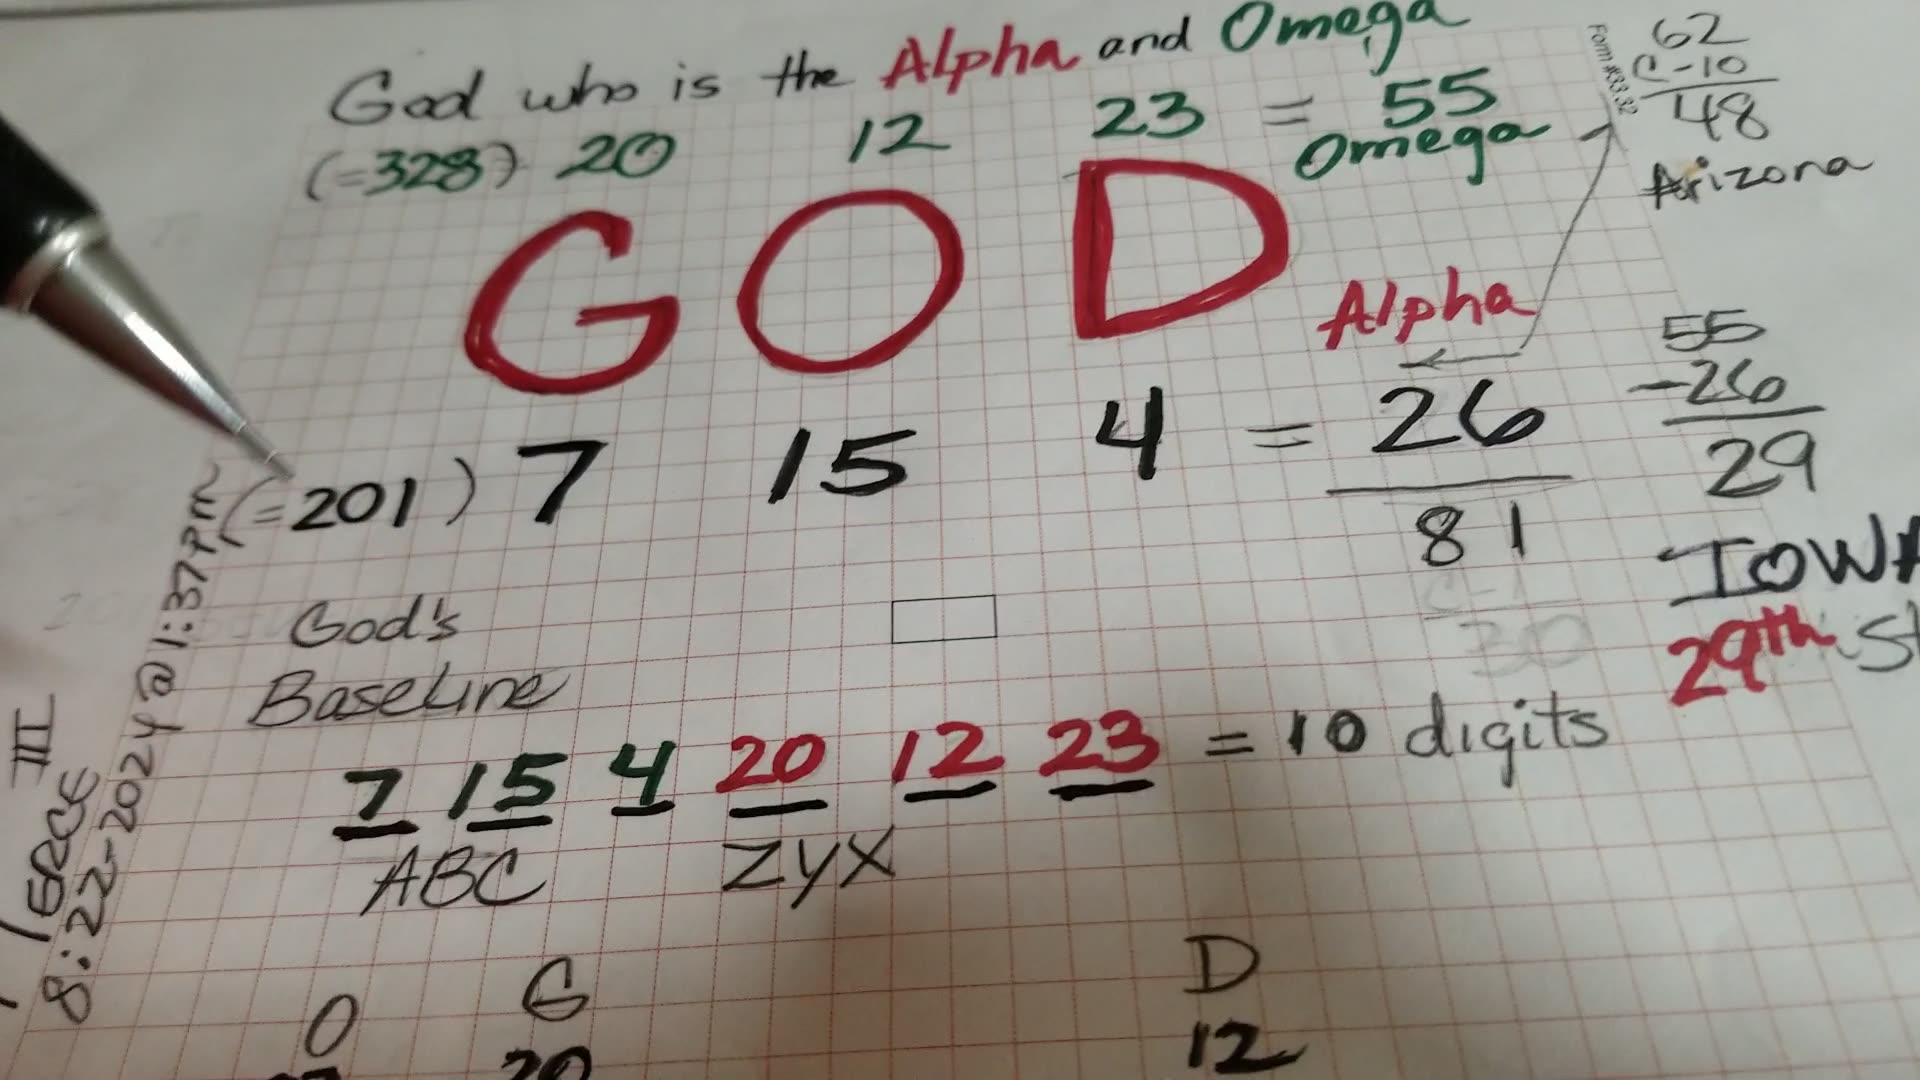 God who is the Alpha and Omega
(=328) 20 12 23 = 55
Omega
G O D
Alpha
(=201) 7 15 4 = 26
81
God's
Baseline
7 15 4 20 12 23 = 10 digits
ABC ZYX
O G D
20 12
Form #33.32
62
C -10
48
Arizona
55
-26
29
IOWA
29th St
III
8:22-2024 @ 1:37pm